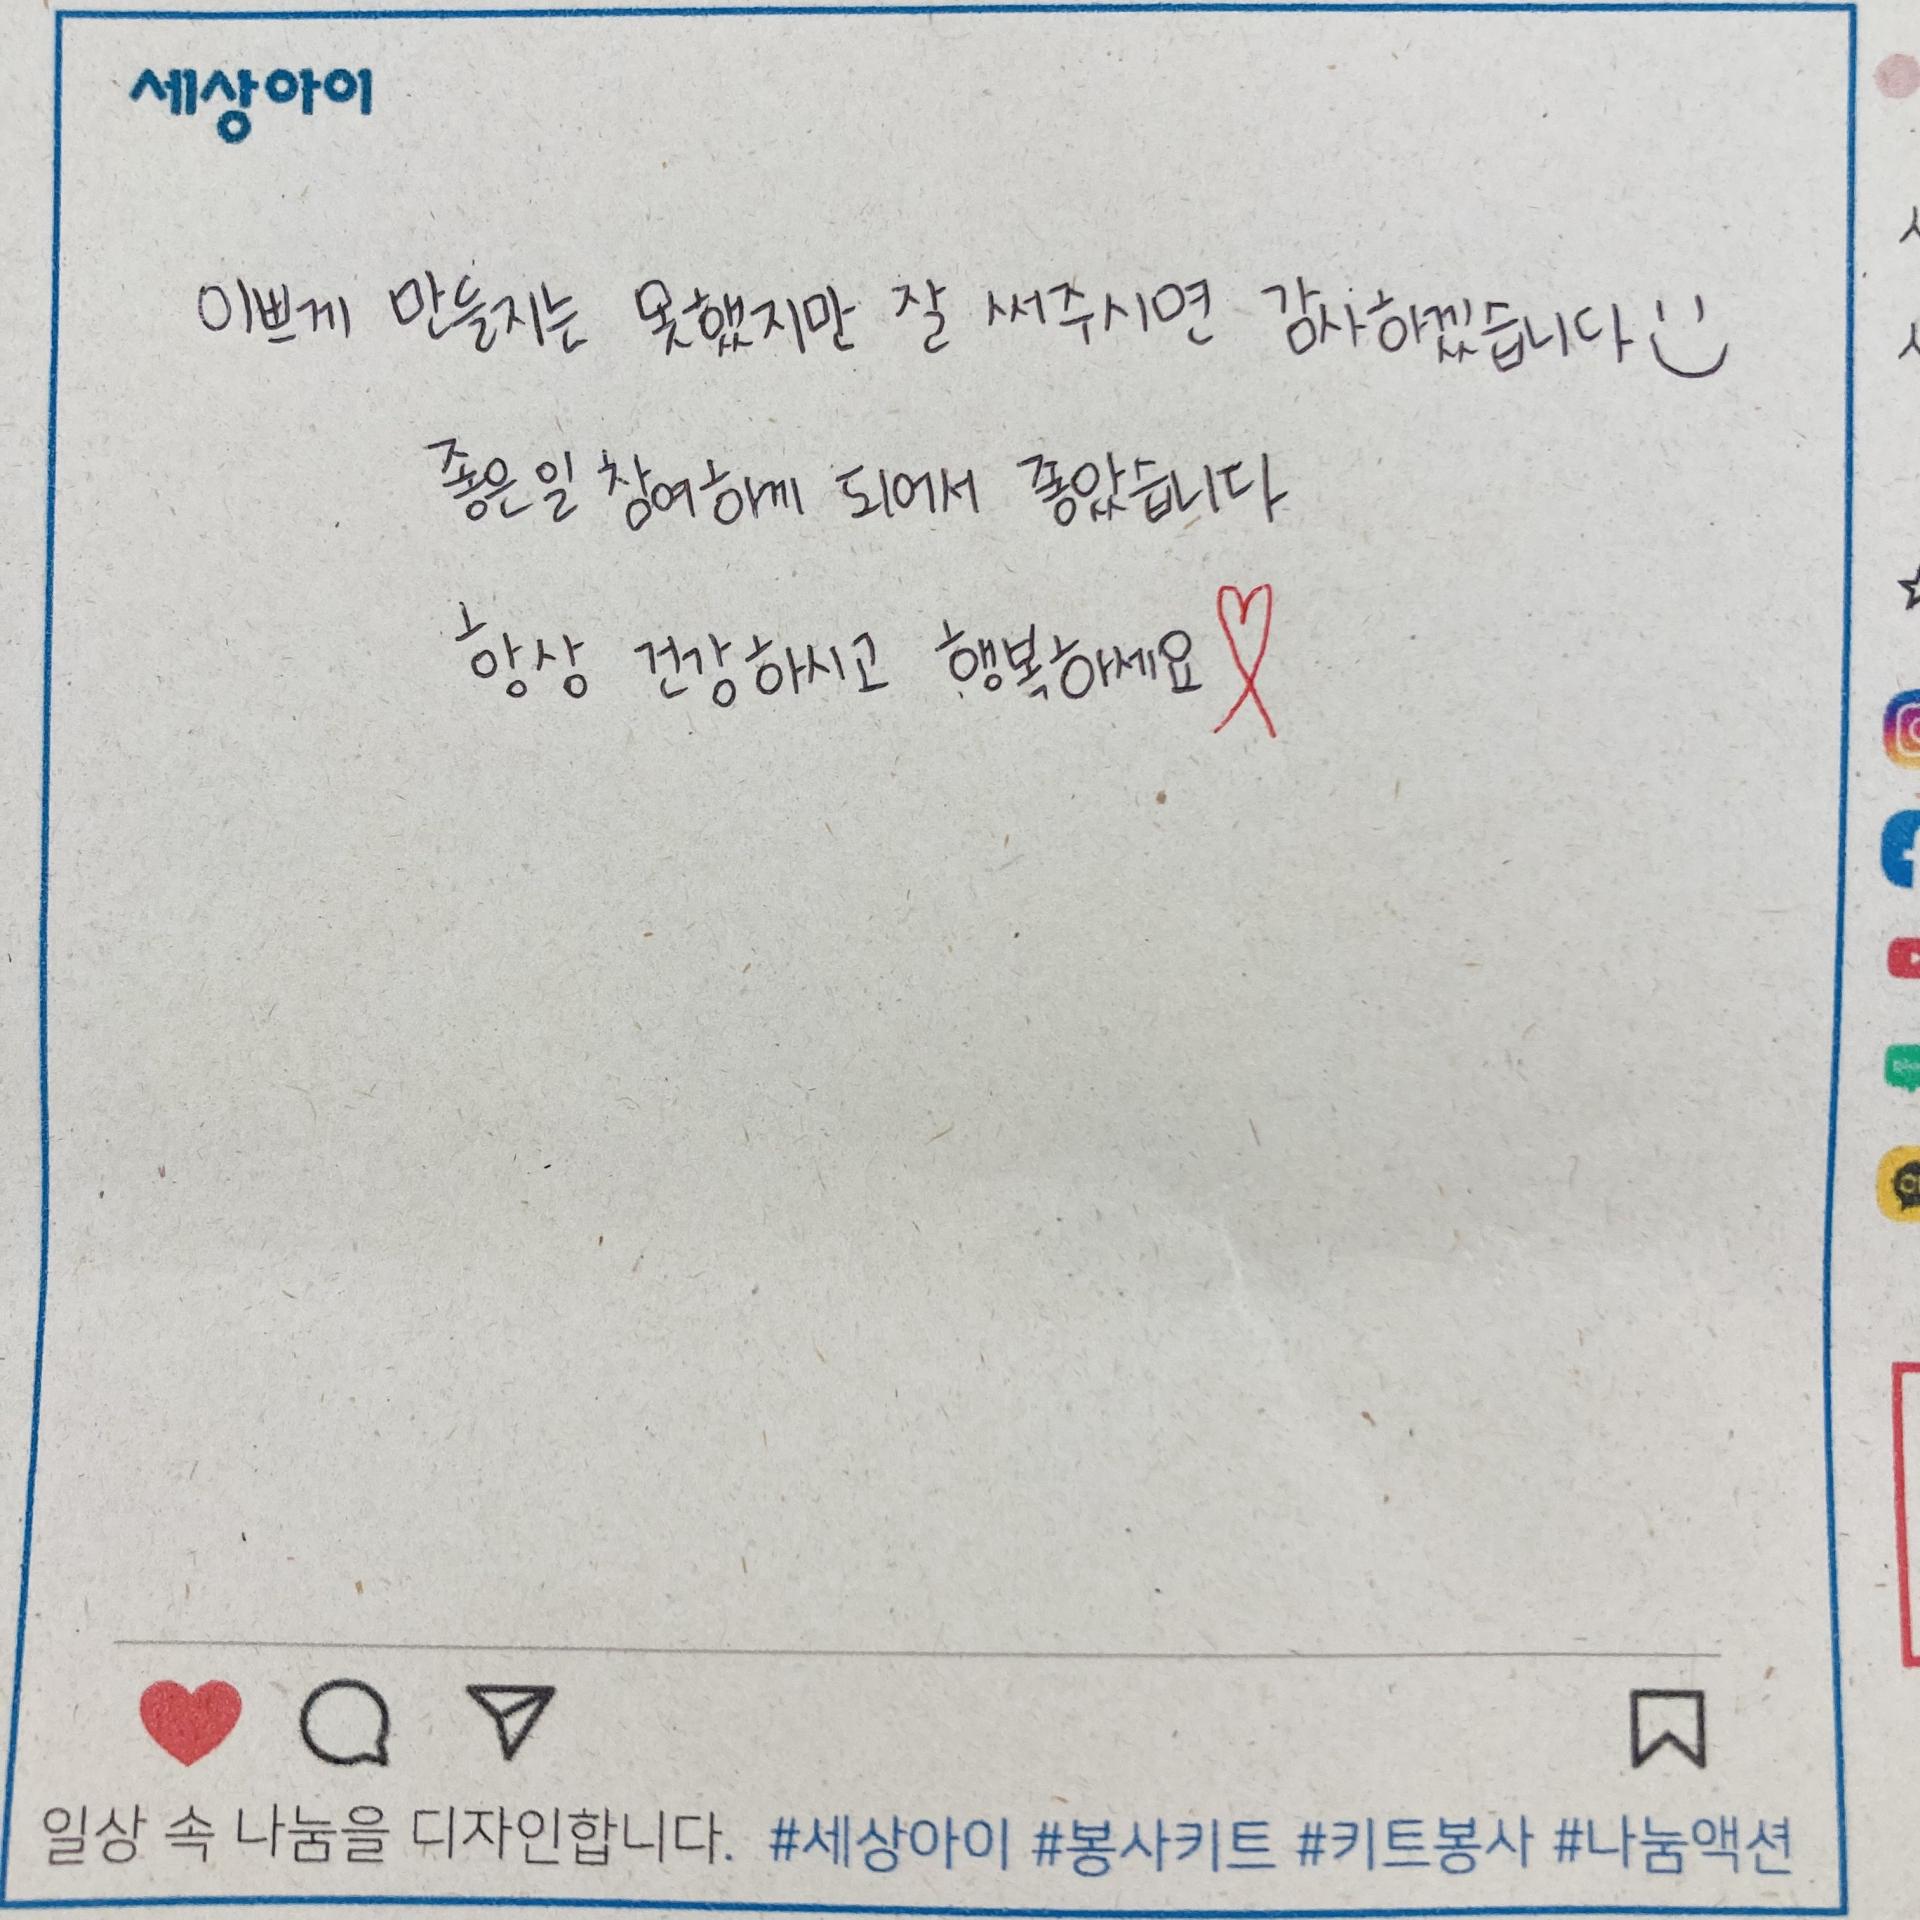 세상아이
이쁘게 만들지는 못했지만 잘 써주시면 감사하겠습니다
좋은일 참여하게 되어서 좋았습니다
항상 건강하시고 행복하세요
일상 속 나눔을 디자인합니다. #세상아이 #봉사키트 #키트봉사 #나눔액션